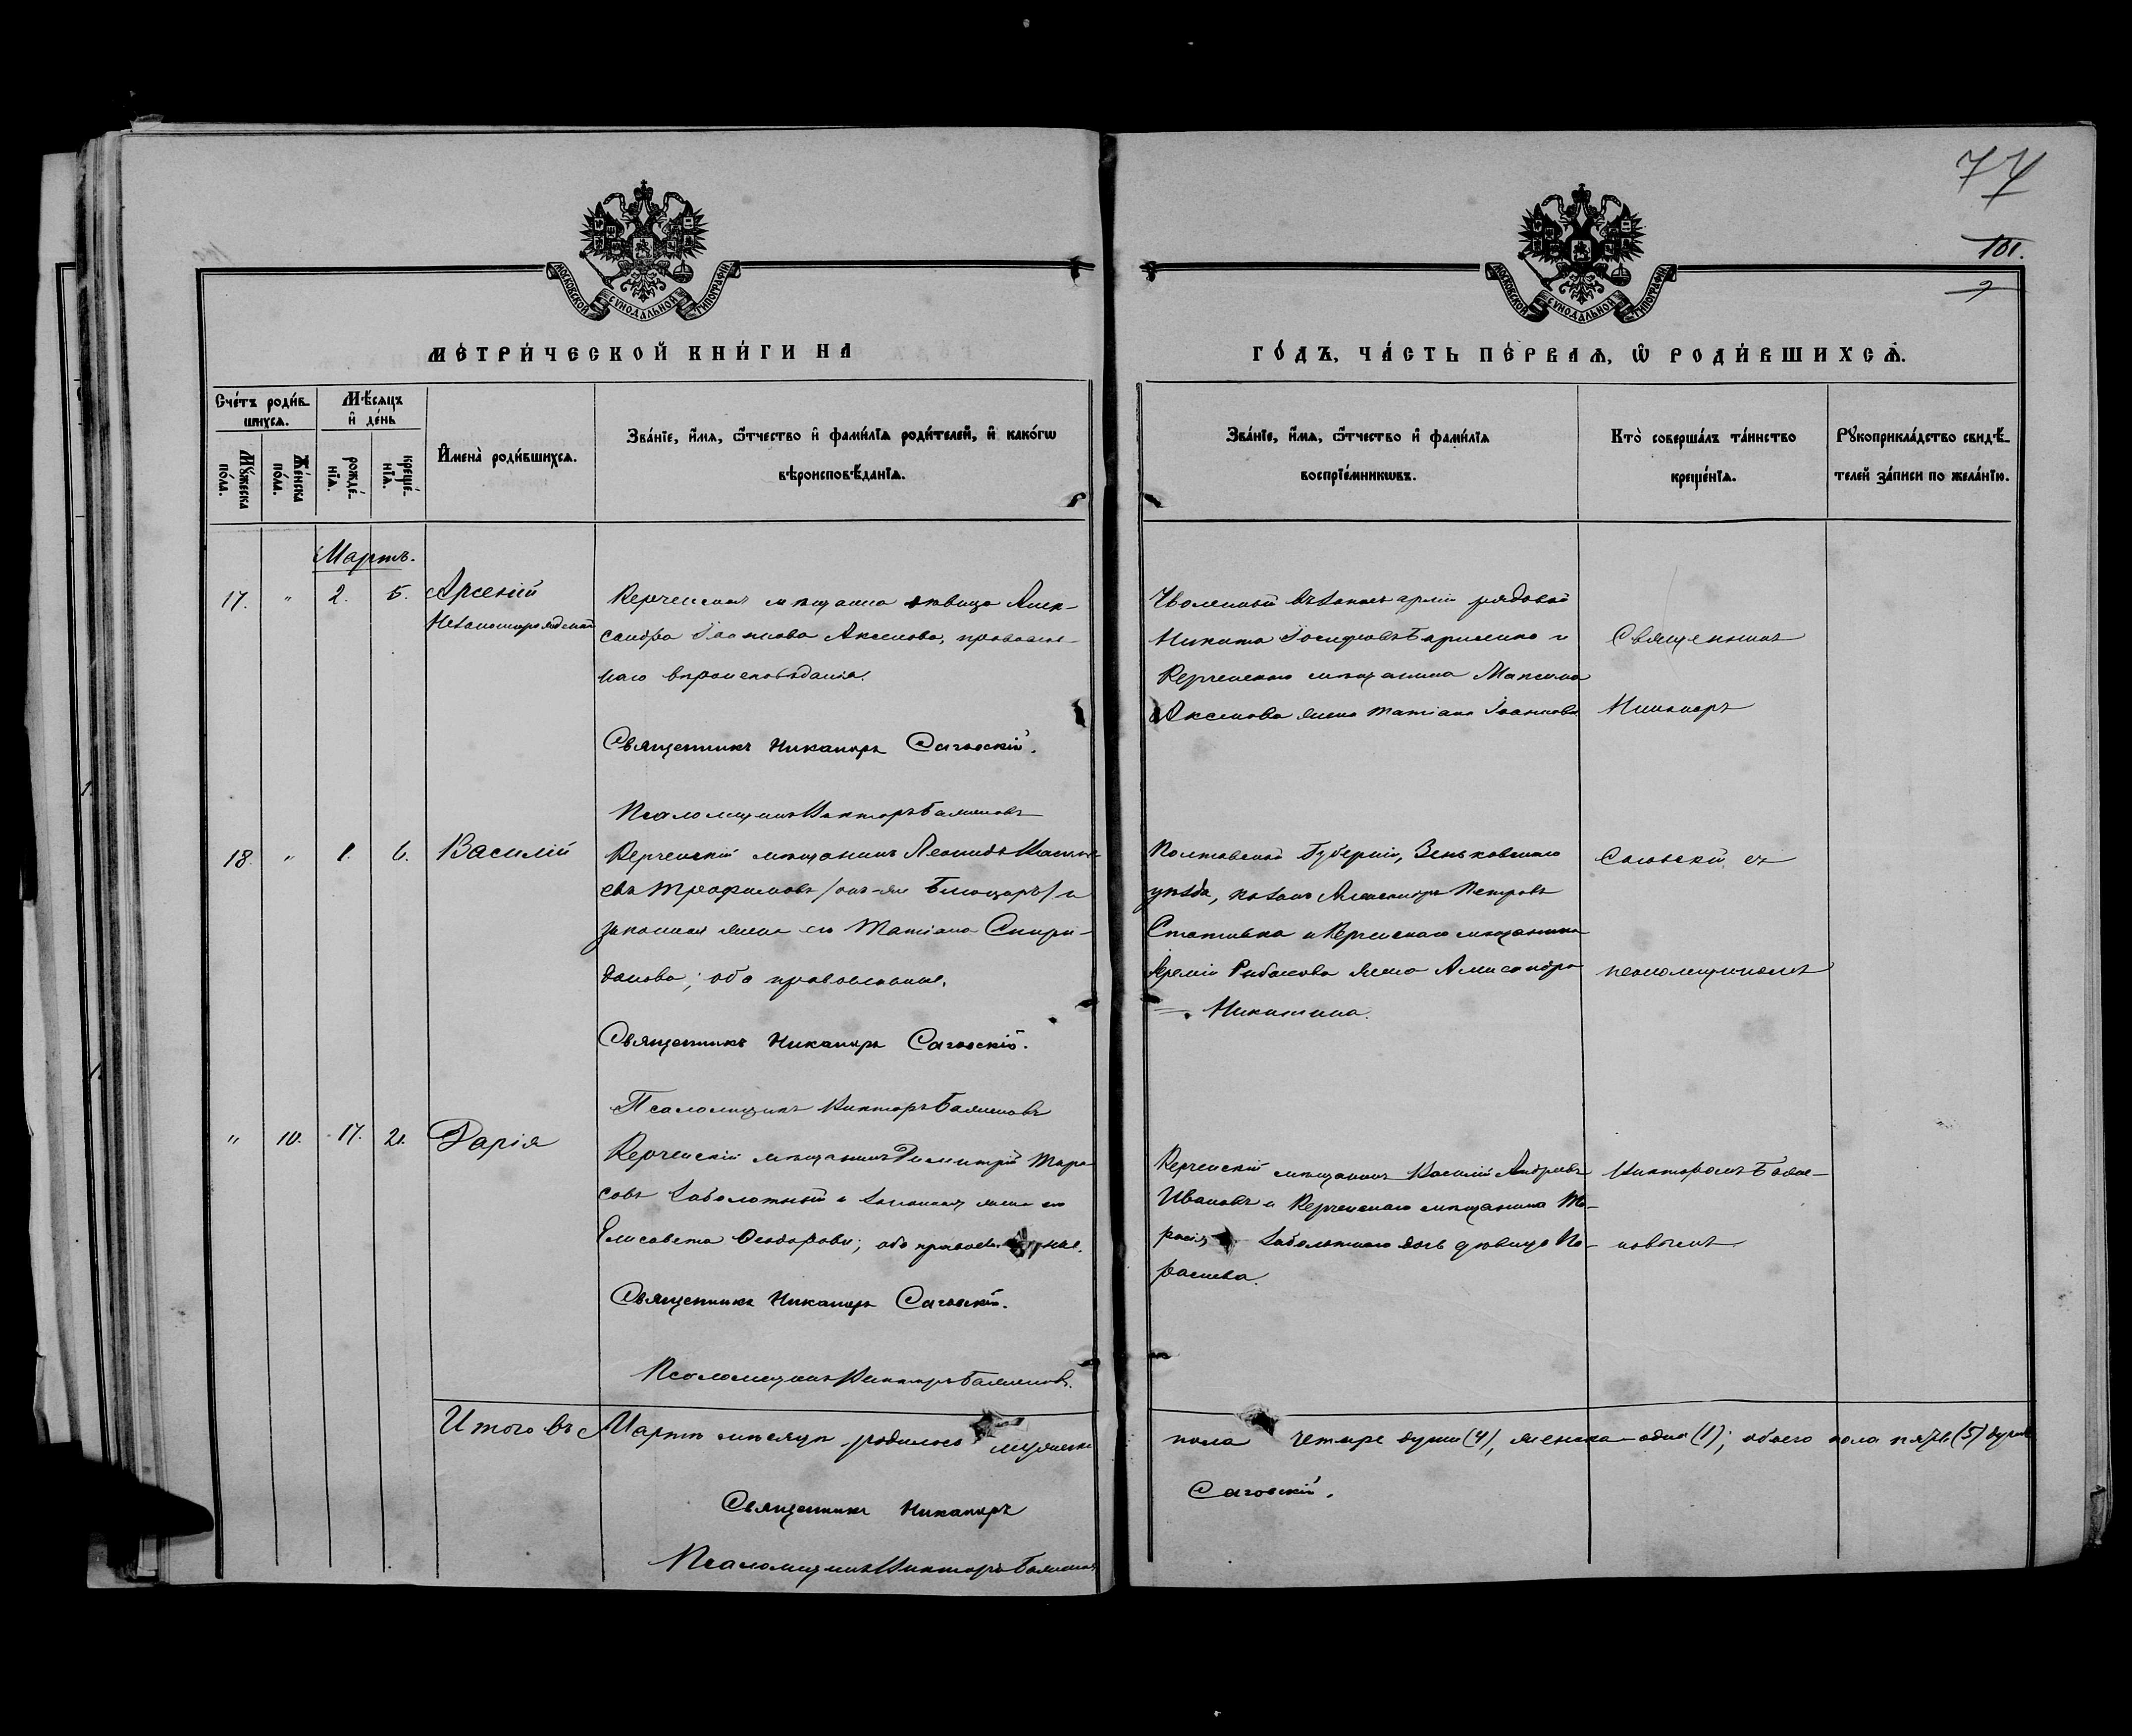 77
101.
МОСКОВСКОЙ СУНОДАЛЬНОЙ ТИПОГРАФІИ
МОСКОВСКОЙ СУНОДАЛЬНОЙ ТИПОГРАФІИ
МЕТРИЧЕСКОЙ КНИГИ НА
ГОДЪ, ЧАСТЬ ПЕРВАЯ, Ѡ РОДИВШИХСЯ.
Счетъ родив-
шихся.
Мужеска пола.
Женска пола.
Мѣсяцъ и день
рожде-
нія.
креще-
нія.
Имена родившихся.
Званіе, имя, отчество и фамилія родителей, и какогѡ
вѣроисповѣданія.
Званіе, имя, отчество и фамилія
воспріемникѡвъ.
Кто совершалъ таинство
крещенія.
Рукоприкладство свидѣ-
телей записи по желанію.
Мартъ.
17. " 2. 5. Арсеній
Незаконнорожденный
Керченская мѣщанка дѣвица Алек-
сандра Іоаннова Аксенова, православ-
наго вѣроисповѣданія.
Священникъ Никаноръ Саговскій.
Псаломщикъ Викторъ
Уволенный въ запасъ арміи рядовой
Никита Іосифовъ и
Керченскаго мѣщанина Максима
Аксенова жена Татіана Іоаннова
Священникъ
Никаноръ
18. " 1. 6. Василій
Керченскій мѣщанинъ Леонидъ
евъ Трофимовъ /онъ-же / и
законная жена его Татіана Спири-
донова; оба православные.
Священникъ Никаноръ Саговскій.
Псаломщикъ Викторъ
Полтавской Губерніи, Зеньковскаго
уѣзда, козакъ Александръ Петровъ
Стативка и Керченскаго мѣщанина
Рыбакова жена Александра
Никитина.
Саговскій съ
псаломщикомъ
" 10. 17. 21. Дарія
Керченскій мѣщанинъ Димитрій Тара-
совъ Заболотный и законная жена его
Елисавета Ѳеодорова; оба православные.
Священникъ Никаноръ Саговскій.
Псаломщикъ Викторъ
Керченскій мѣщанинъ Василій Андреевъ
Ивановъ и Керченскаго мѣщанина Та-
расія Заболотнаго дочь дѣвица Па-
раскева.
Викторомъ
новымъ
Итого въ Мартѣ мѣсяцѣ родилось мужеска
пола четыре души (4), женска одна (1); обоего пола пять (5) душъ
Священникъ Никаноръ
Саговскій.
Псаломщикъ Викторъ